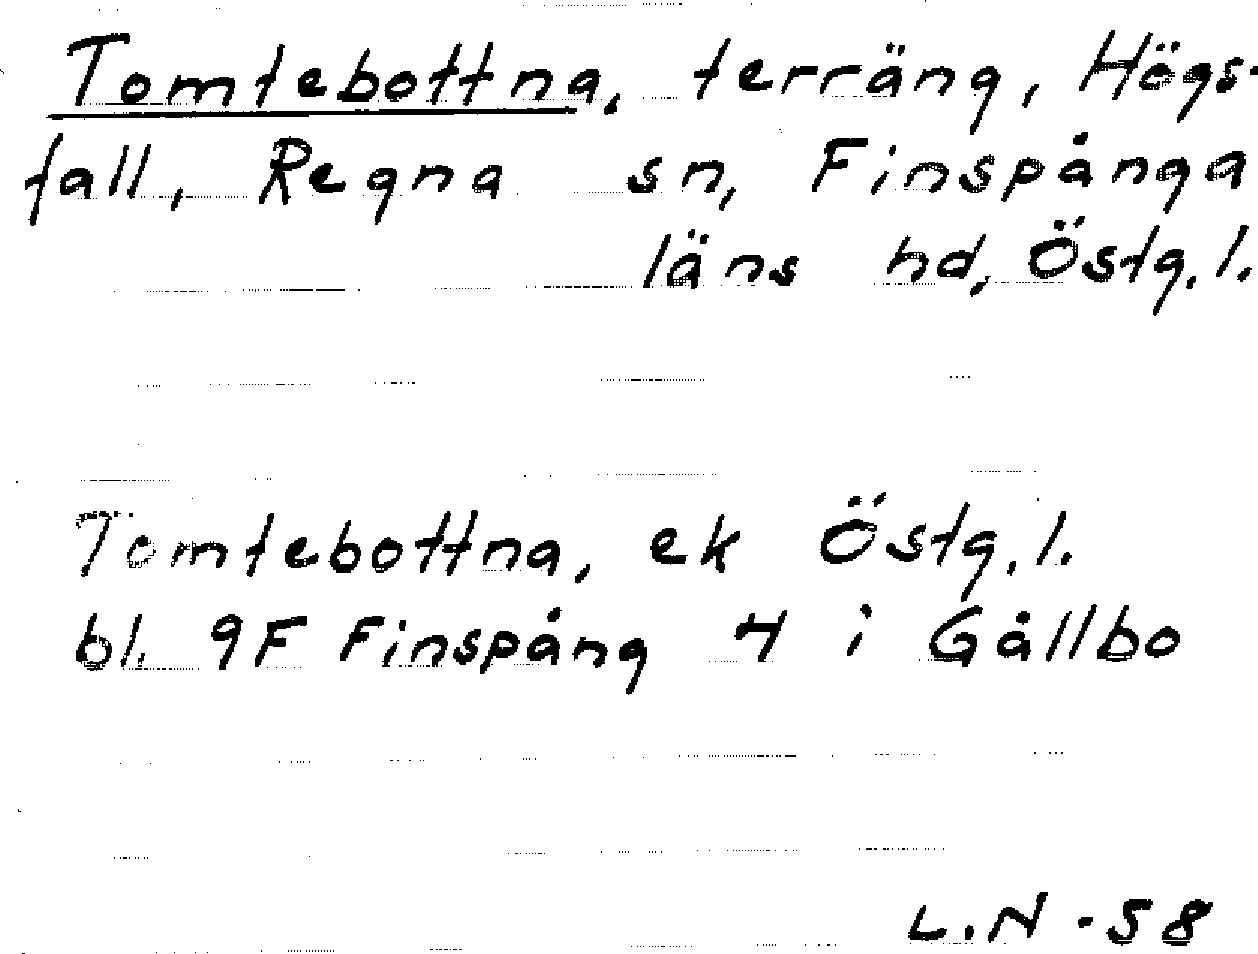 Tomtebottna, terräng, Högs-
fall, Regna sn, Finspånga
läns hd, Östg. l.
Tomtebottna, ek Östg. l.
bl. 9F Finspång 4 i Gållbo
L.N -58